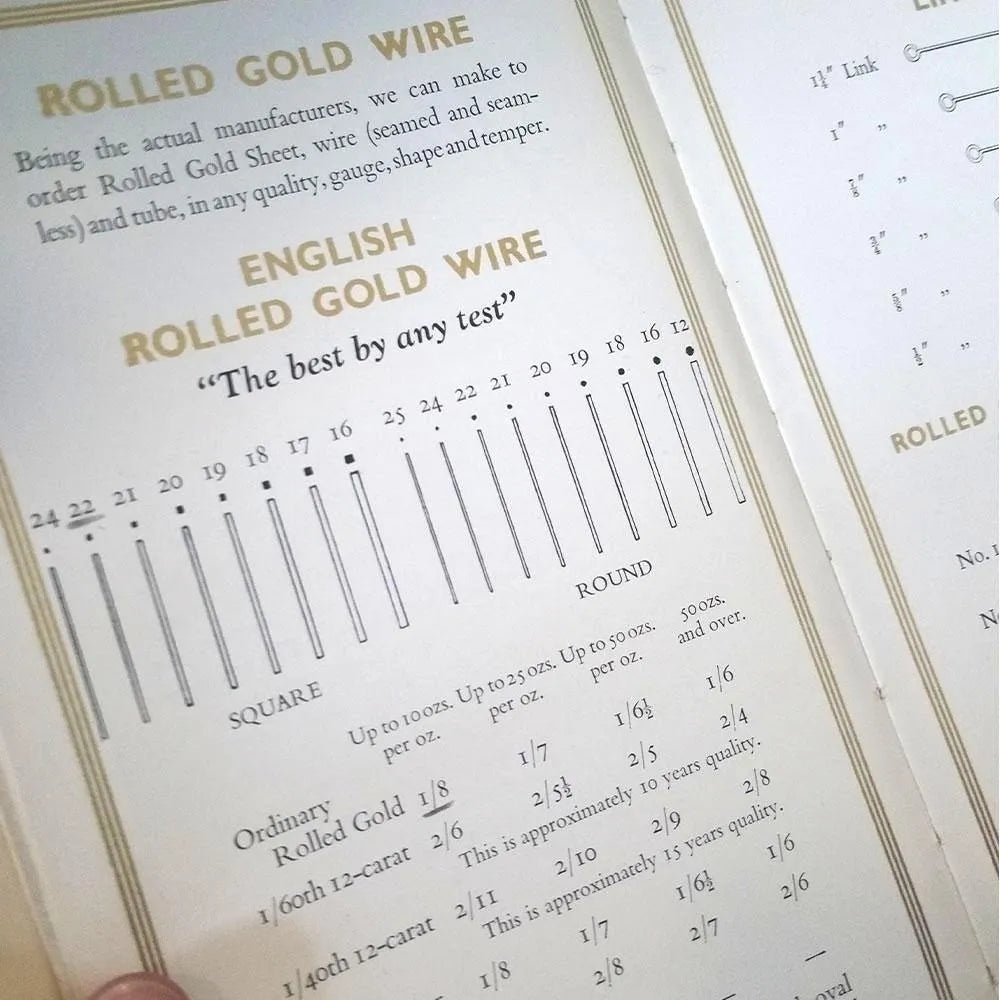 ROLLED GOLD WIRE
Being the actual manufacturers, we can make to
order Rolled Gold Sheet, wire (seamed and seam-
less) and tube, in any quality, gauge, shape and temper.
ENGLISH
ROLLED GOLD WIRE
“The best by any test”
24 22 21 20 19 18 17 16 25 24 22 21 20 19 18 16 12
SQUARE
ROUND
Up to 10 ozs. Up to 25 ozs. Up to 50 ozs. 50 ozs.
per oz. per oz. per oz. and over.
Ordinary
Rolled Gold 1/8 1/7 1/6½ 1/6
1/60th 12-carat 2/6 2/5½ 2/5 2/4
This is approximately 10 years quality.
1/40th 12-carat 2/11 2/10 2/9 2/8
This is approximately 15 years quality.
1/8 1/7 1/6½ 1/6
2/8 2/7 2/6
—
1¼" Link
1" ”
⅞" ”
¾" ”
⅝" ”
½" ”
ROLLED
No. 1